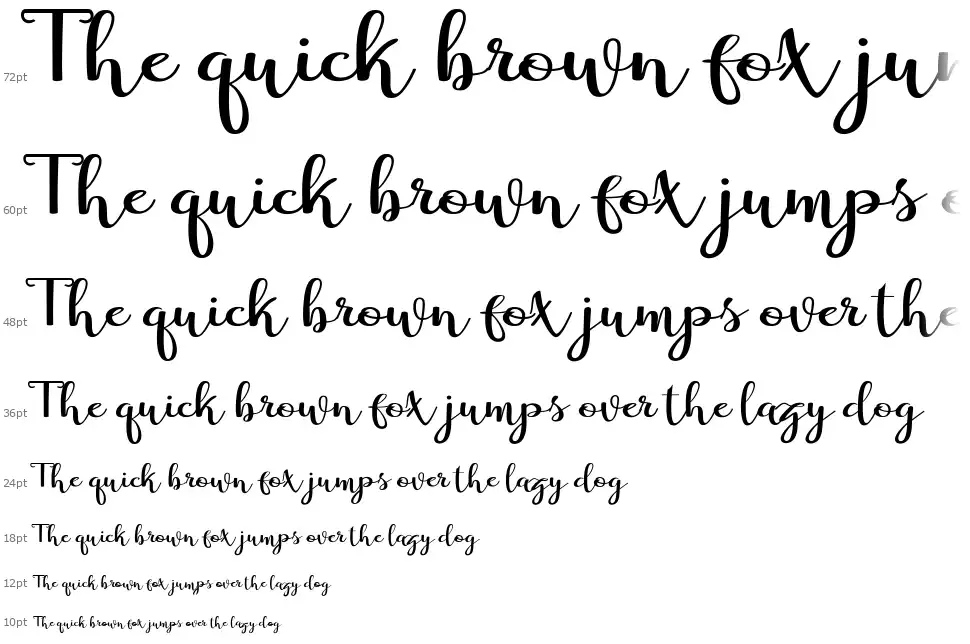 72pt The quick brown fox jun
60pt The quick brown fox jumps e
48pt The quick brown fox jumps over the
36pt The quick brown fox jumps over the lazy dog
24pt The quick brown fox jumps over the lazy dog
18pt The quick brown fox jumps over the lazy dog
12pt The quick brown fox jumps over the lazy dog
10pt The quick brown fox jumps over the lazy dog